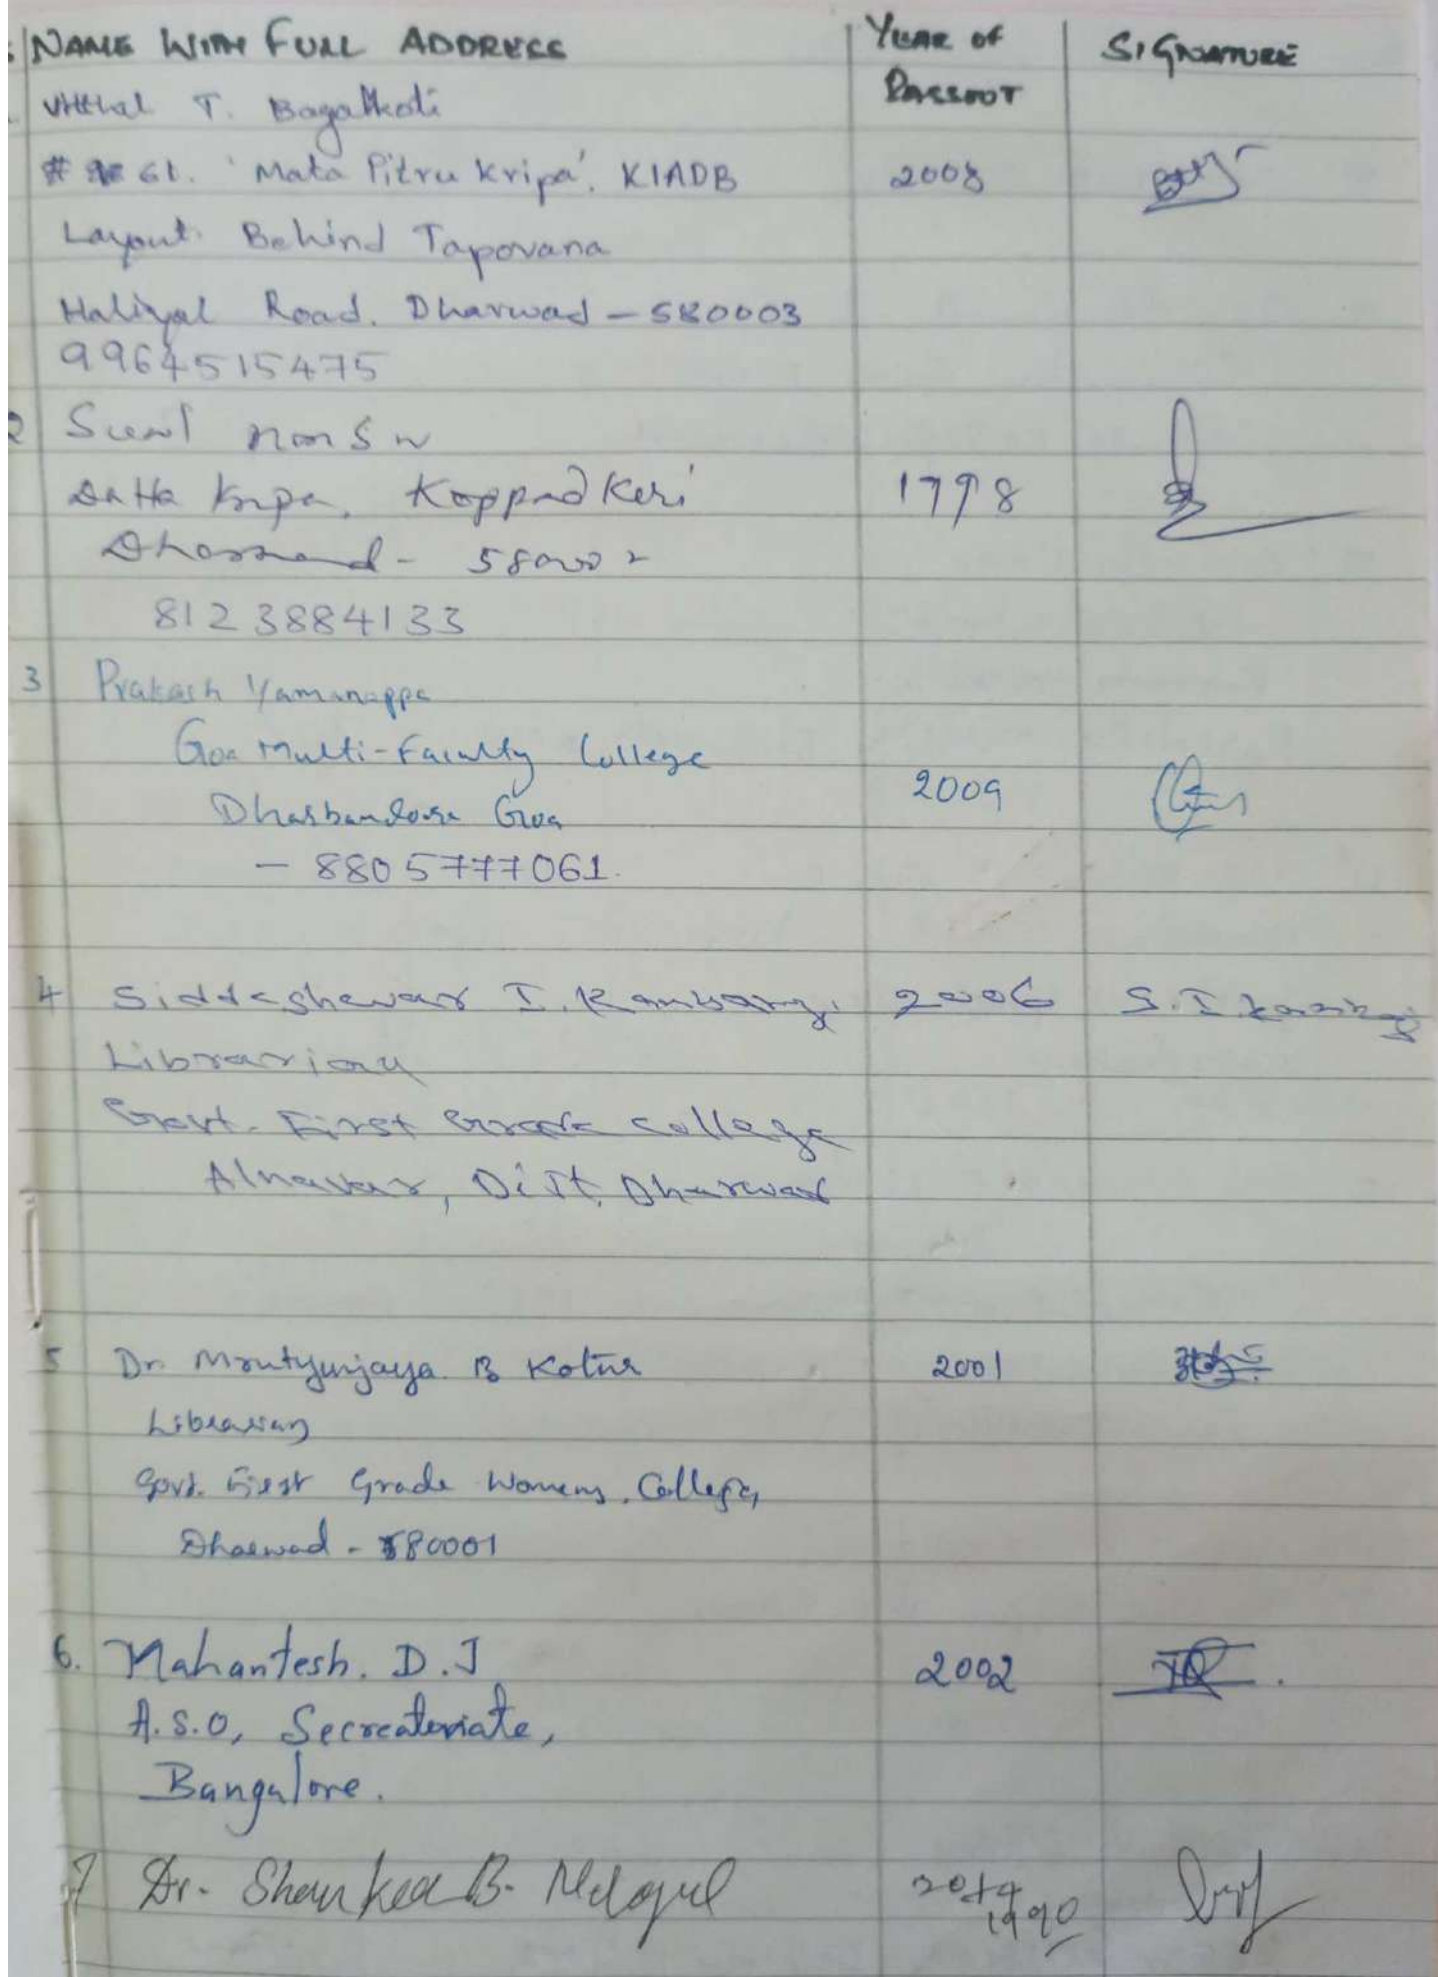 NAME WITH FULL ADDRESS YEAR OF PASSOUT SIGNATURE
Vitthal T. Bagalkoti
# 61. 'Mata Pitru Kripa', KIADB 2008
Layout. Behind Tapovana
Haliyal Road. Dharwad - 580003
9964515475
2
Datta Krupa, Koppad Keri 1998
Dharwad - 580002
8123884133
3 Prakash Yamanappa
Goa Multi-Faculty College
Dharbandora Goa 2009
- 8805777061.
4 Siddeshewar I. 2006 S. I
Librarian
Govt. First Grade College
Alnavar, Dist, Dharwad
5 Dr. Mrutyunjaya. B Kotur 2001
Librarian
Govt. First Grade Womens, College,
Dharwad - 580001
6. Mahantesh. D.J 2002
A.S.O, Secreateriate,
Bangalore.
7 Dr. Shankar B. 1990